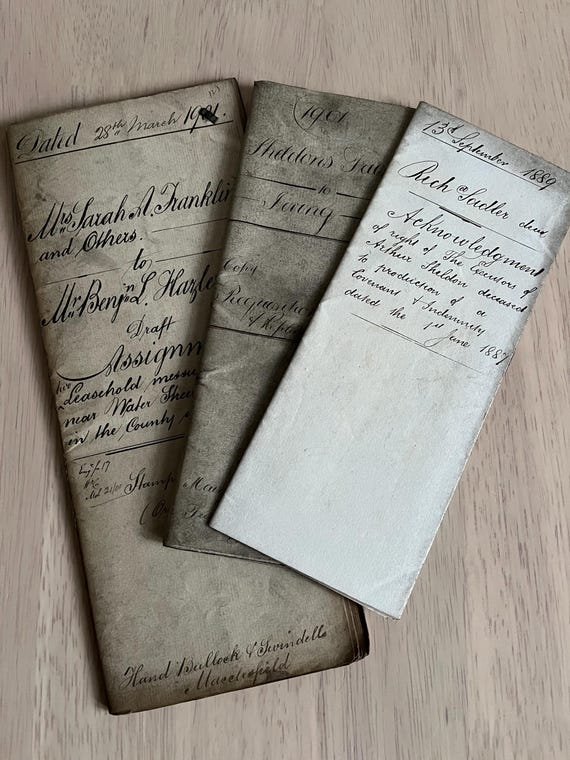 Dated 28th March 1901.
Mrs Sarah A. Franklin
and Others.
to
Mr Benjn L. Hazle
Draft
Assignm
five Leasehold messu
near Water Stree
in the County
Stamp
Hand Bullock & Swindells
Macclesfield
1901
Sheldons
to
Copy
Requisitio
& Repl
13th September 1889
Rich d Sadler decd
Acknowledgment
of right of The Executors of
Arthur Sheldon deceased
to production of a
Covenant & Indemnity
dated the 1st June 1887